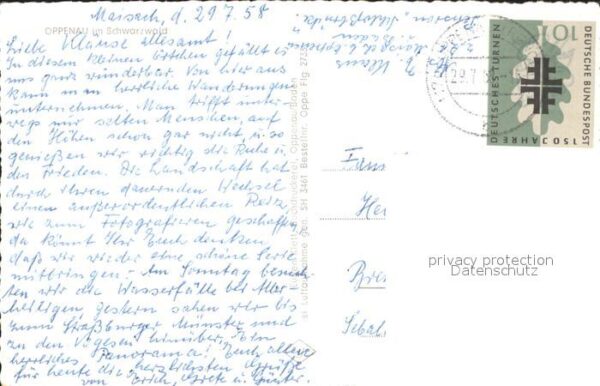 Maisach, d. 29.7.58
OPPENAU im Schwarzwald
Liebe Klause allesamt!
In diesem kleinen Örtchen gefällt es
uns ganz wunderbar. Von hier aus
kann man herrliche Wanderungen
unternehmen. Man trifft unter-
wegs nur selten Menschen, auf
den Höhen schon gar nicht, u. so
genießen wir richtig die Ruhe u.
den Frieden. Die Landschaft hat
durch ihren dauernden Wechsel
einen außerordentlichen Reiz
wie zum Fotografieren geschaffen,
da könnt Ihr Euch denken
daß wir wieder eine schöne Serie
mitbringen. - Am Sonntag besuch-
ten wir die Wasserfälle bei Aller-
heiligen, gestern sahen wir bis
zum Straßburger Münster und
zu den Vogesen hinüber, Ein
herrliches Panorama! Euch allen
für heute die herzlichsten Grüße
von Erich, Grete u. Günter.
Oppenau/Baden
SH 3461 Bestellnr. Oppe Flg
29.7.5
10
DEUTSCHES TURNEN
150 JAHRE
DEUTSCHE BUNDESPOST
Fam
He
Bre
Sebal
privacy protection
Datenschutz